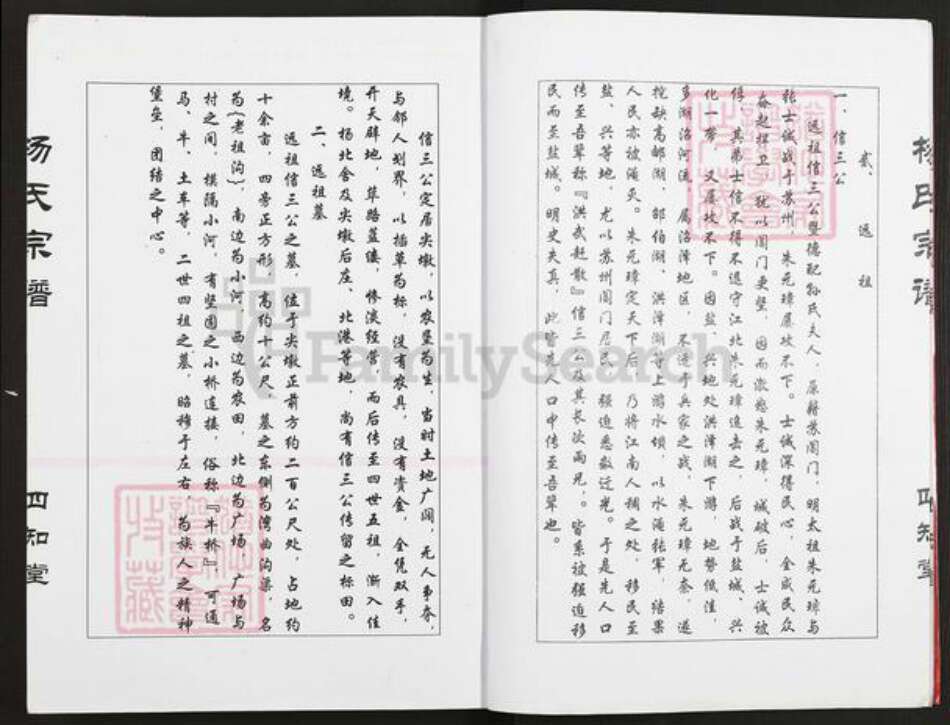 杨氏宗谱
四知堂
贰、远祖
一、信三公
远祖信三公暨德配孙氏夫人，原籍苏阊门，明太祖朱元璋与
张士诚战于苏州，朱元璋屡攻不下。士诚深得民心，全城民众
奋起捍卫，犹以阊门更坚，因而激怒朱元璋，城破后，士诚被
俘，其弟士信不得不退守江北朱元璋追击之，后战于盐城、兴
化一带，又屡攻不下。因盐、兴地处洪泽湖下游，地势低洼，
多湖沼河流，属沼泽地区，不适于兵家之战，朱元璋无奈，遂
挖缺高邮湖、邵伯湖、洪泽湖等上游水坝，以水淹张军，结果
人民亦被淹灭。朱元璋定天下后，乃将江南人稠之处，移民至
盐、兴等地，尤以苏州阊门居民，强迫悉数迁光。于是先人口
传至吾辈称『洪武赶散』信三公及其长次两兄，皆系被强迫移
民而至盐城。明史失真，此皆先人口中传至吾辈也。
信三公定居尖墩，以农垦为生，当时土地广阔，无人争夺，
与邻人划界，以插草为标，没有农具，没有资金，全凭双手，
开天辟地，筚路蓝缕，惨淡经营，而后传至四世五祖，渐入佳
境。杨北舍及尖墩后庄、北港等地，尚有信三公传留之标田。
二、远祖墓
远祖信三公之墓，位于尖墩正前方约二百公尺处，占地约
十余亩，四旁正方形，高约十公尺，墓之东侧为湾曲沟渠，名
为(老祖沟)，南边为小河，西边为农田，北边为广场，广场与
村之间，横隔小河，有坚固之小桥连接，俗称『牛桥』，可通
马、牛、土车等，二世四祖之墓，昭穆于左右，为族人之精神
堡垒，团结之中心。
杨氏宗谱
四知堂
FamilySearch